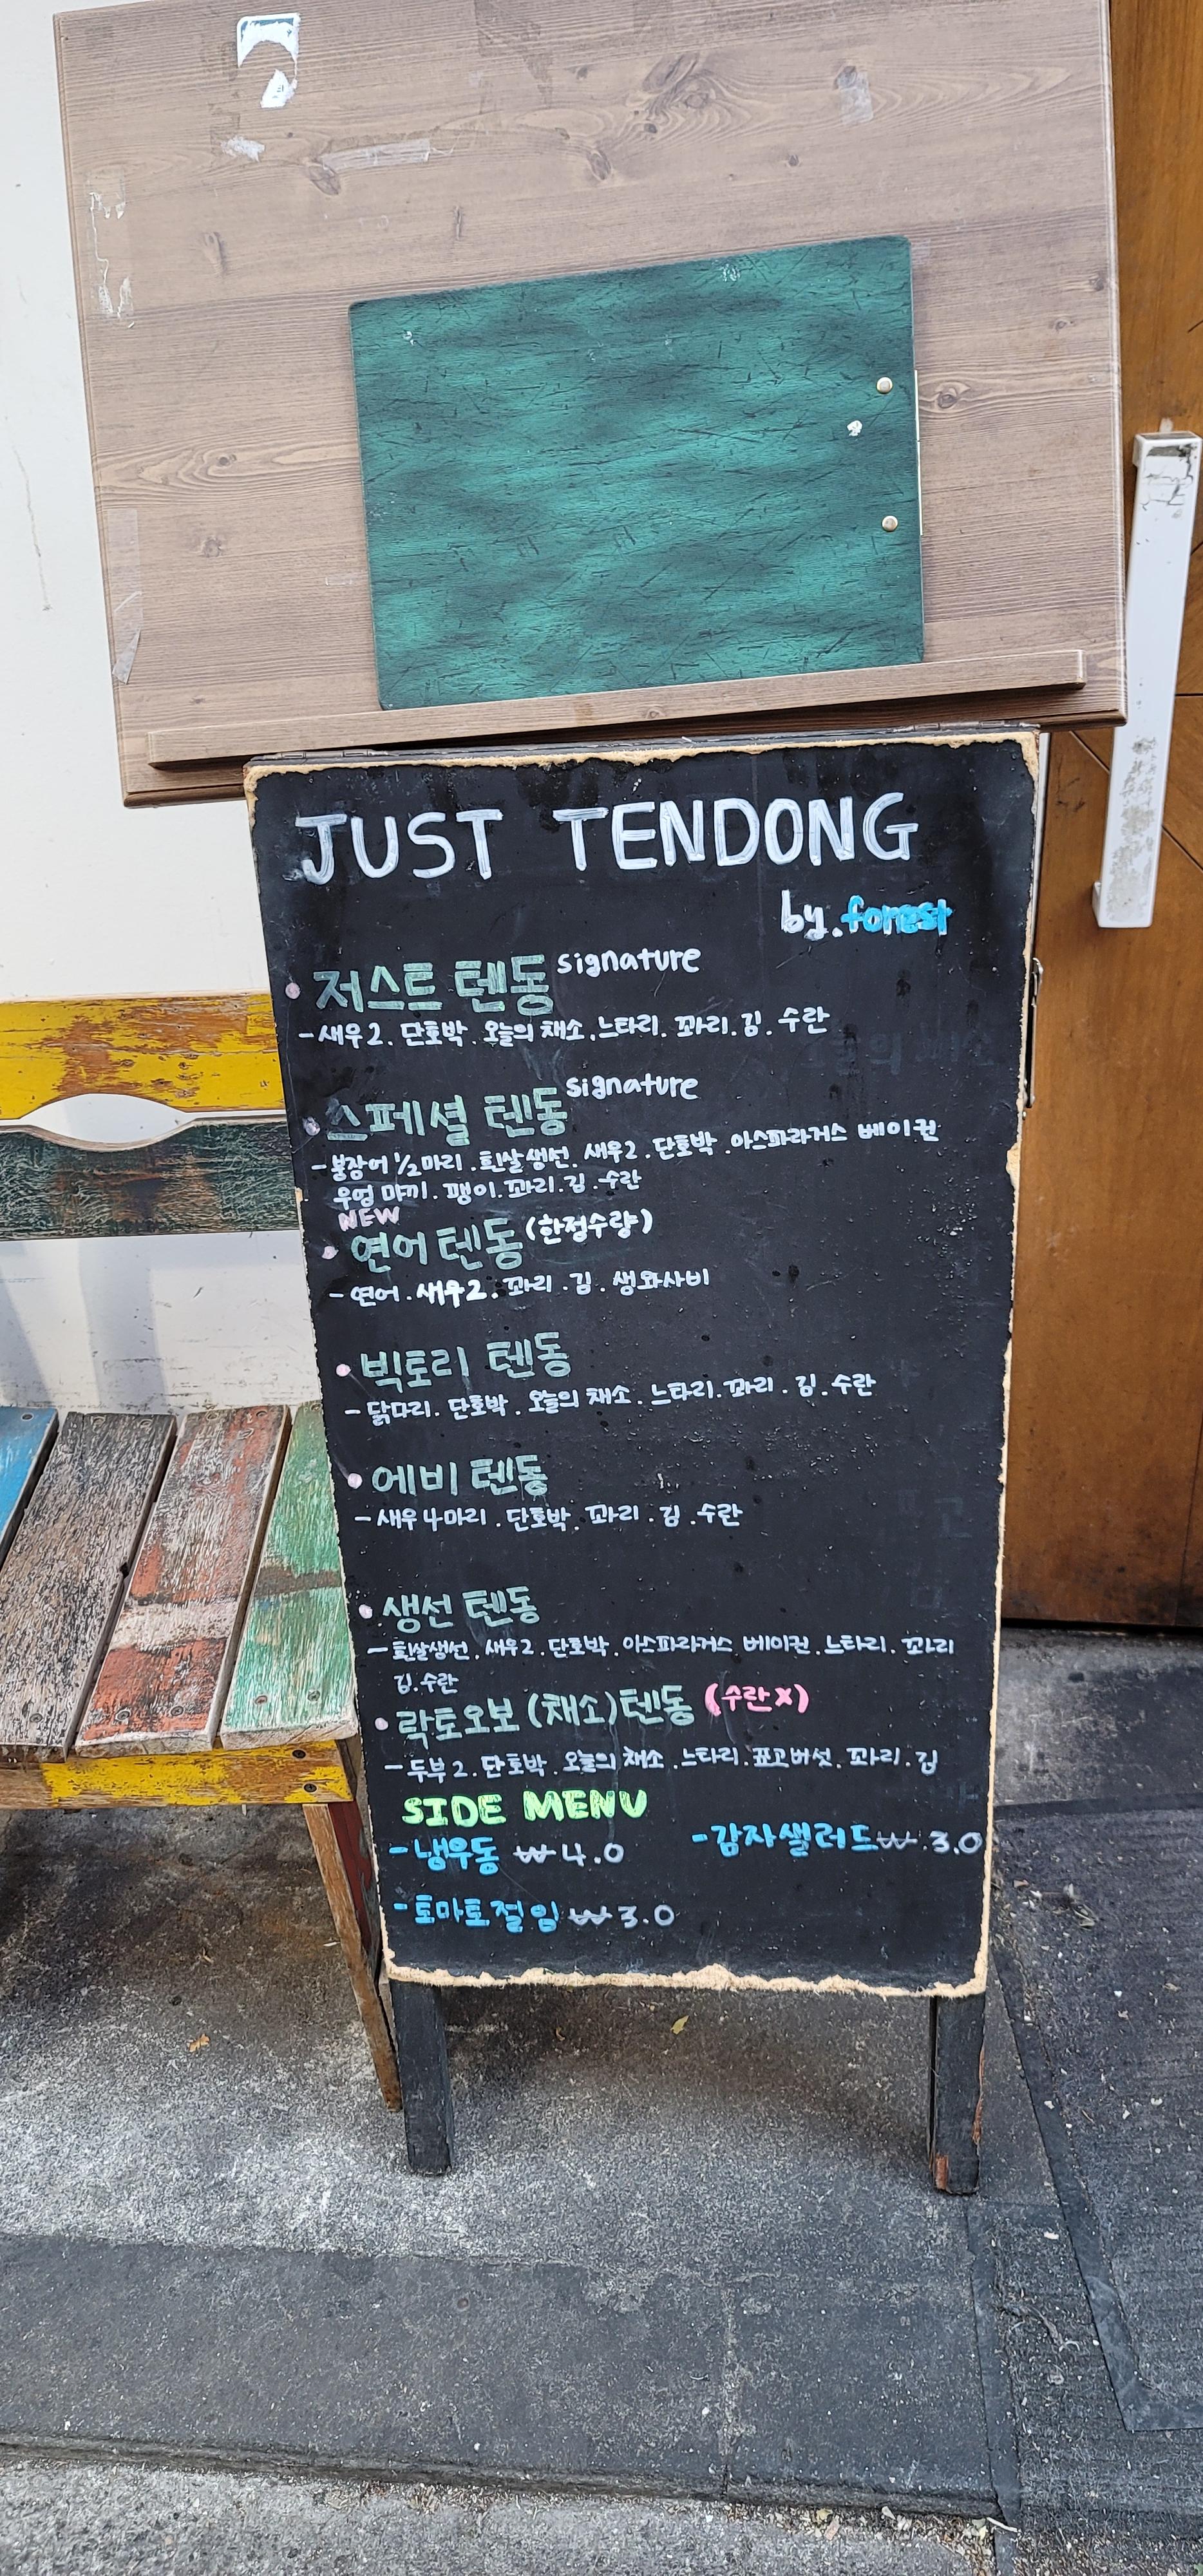 JUST TENDONG
by. forest
저스트 텐동 signature
- 새우2. 단호박. 오늘의 채소. 느타리. 꽈리. 김. 수란
스페셜 텐동 signature
- 붕장어 1/2마리. 흰살생선. 새우2. 단호박. 아스파라거스 베이컨
우엉 마끼. 팽이. 꽈리. 김. 수란
NEW
연어 텐동 (한정수량)
- 연어. 새우2. 꽈리. 김. 생와사비
빅토리 텐동
- 닭다리. 단호박. 오늘의 채소. 느타리. 꽈리. 김. 수란
에비 텐동
- 새우4마리. 단호박. 꽈리. 김. 수란
생선 텐동
- 흰살생선. 새우2. 단호박. 아스파라거스 베이컨. 느타리. 꽈리
김. 수란
락토오보 (채소) 텐동 (수란X)
- 두부2. 단호박. 오늘의 채소. 느타리. 표고버섯. 꽈리. 김
SIDE MENU
- 냉우동 ₩4.0 - 감자샐러드 ₩3.0
- 토마토절임 ₩3.0